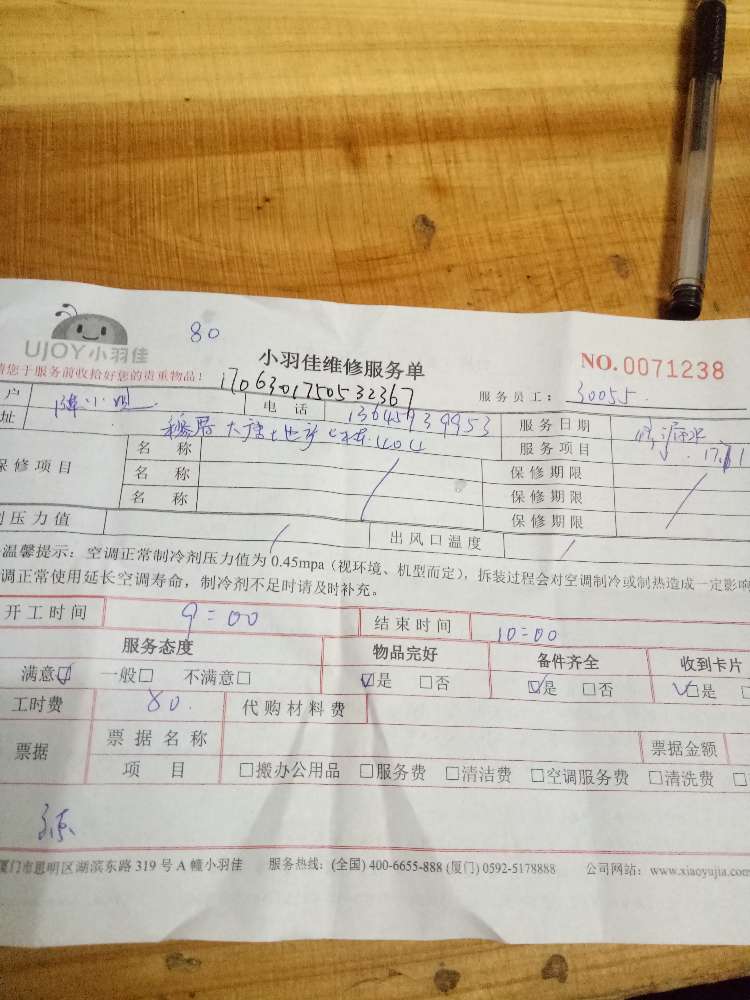 80
UJOY小羽佳
小羽佳维修服务单
NO.0071238
请您于服务前收拾好您的贵重物品！
170630175053 2367
服务员工： 30055
户
电 话 13645939953
址
服务日期
名 称
服务项目
保修项目
名 称
保修期限
名 称
保修期限
保修期限
剂压力值
出风口温度
温馨提示：空调正常制冷剂压力值为 0.45mpa（视环境、机型而定），拆装过程会对空调制冷或制热造成一定影响
调正常使用延长空调寿命，制冷剂不足时请及时补充。
开工时间 9=00 结束时间 10=00
服务态度 物品完好 备件齐全 收到卡片
满意☑ 一般□ 不满意□ ☑是 □否 ☑是 □否 ☑是
工时费 80. 代购材料费
票据 票据名称 票据金额
项 目 □搬办公用品 □服务费 □清洁费 □空调服务费 □清洗费
厦门市思明区湖滨东路 319 号 A 幢小羽佳 服务热线：(全国) 400-6655-888 (厦门) 0592-5178888 公司网站：www.xiaoyujia.com